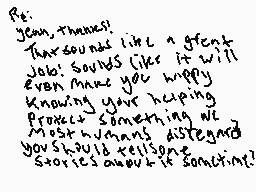 Re:
yeah, thankes!
That sounds like a great
job! sounds like it will
even make you happy
knowing your helping
protect something we
most humans disregard
you should tell some
stories about it sometime?